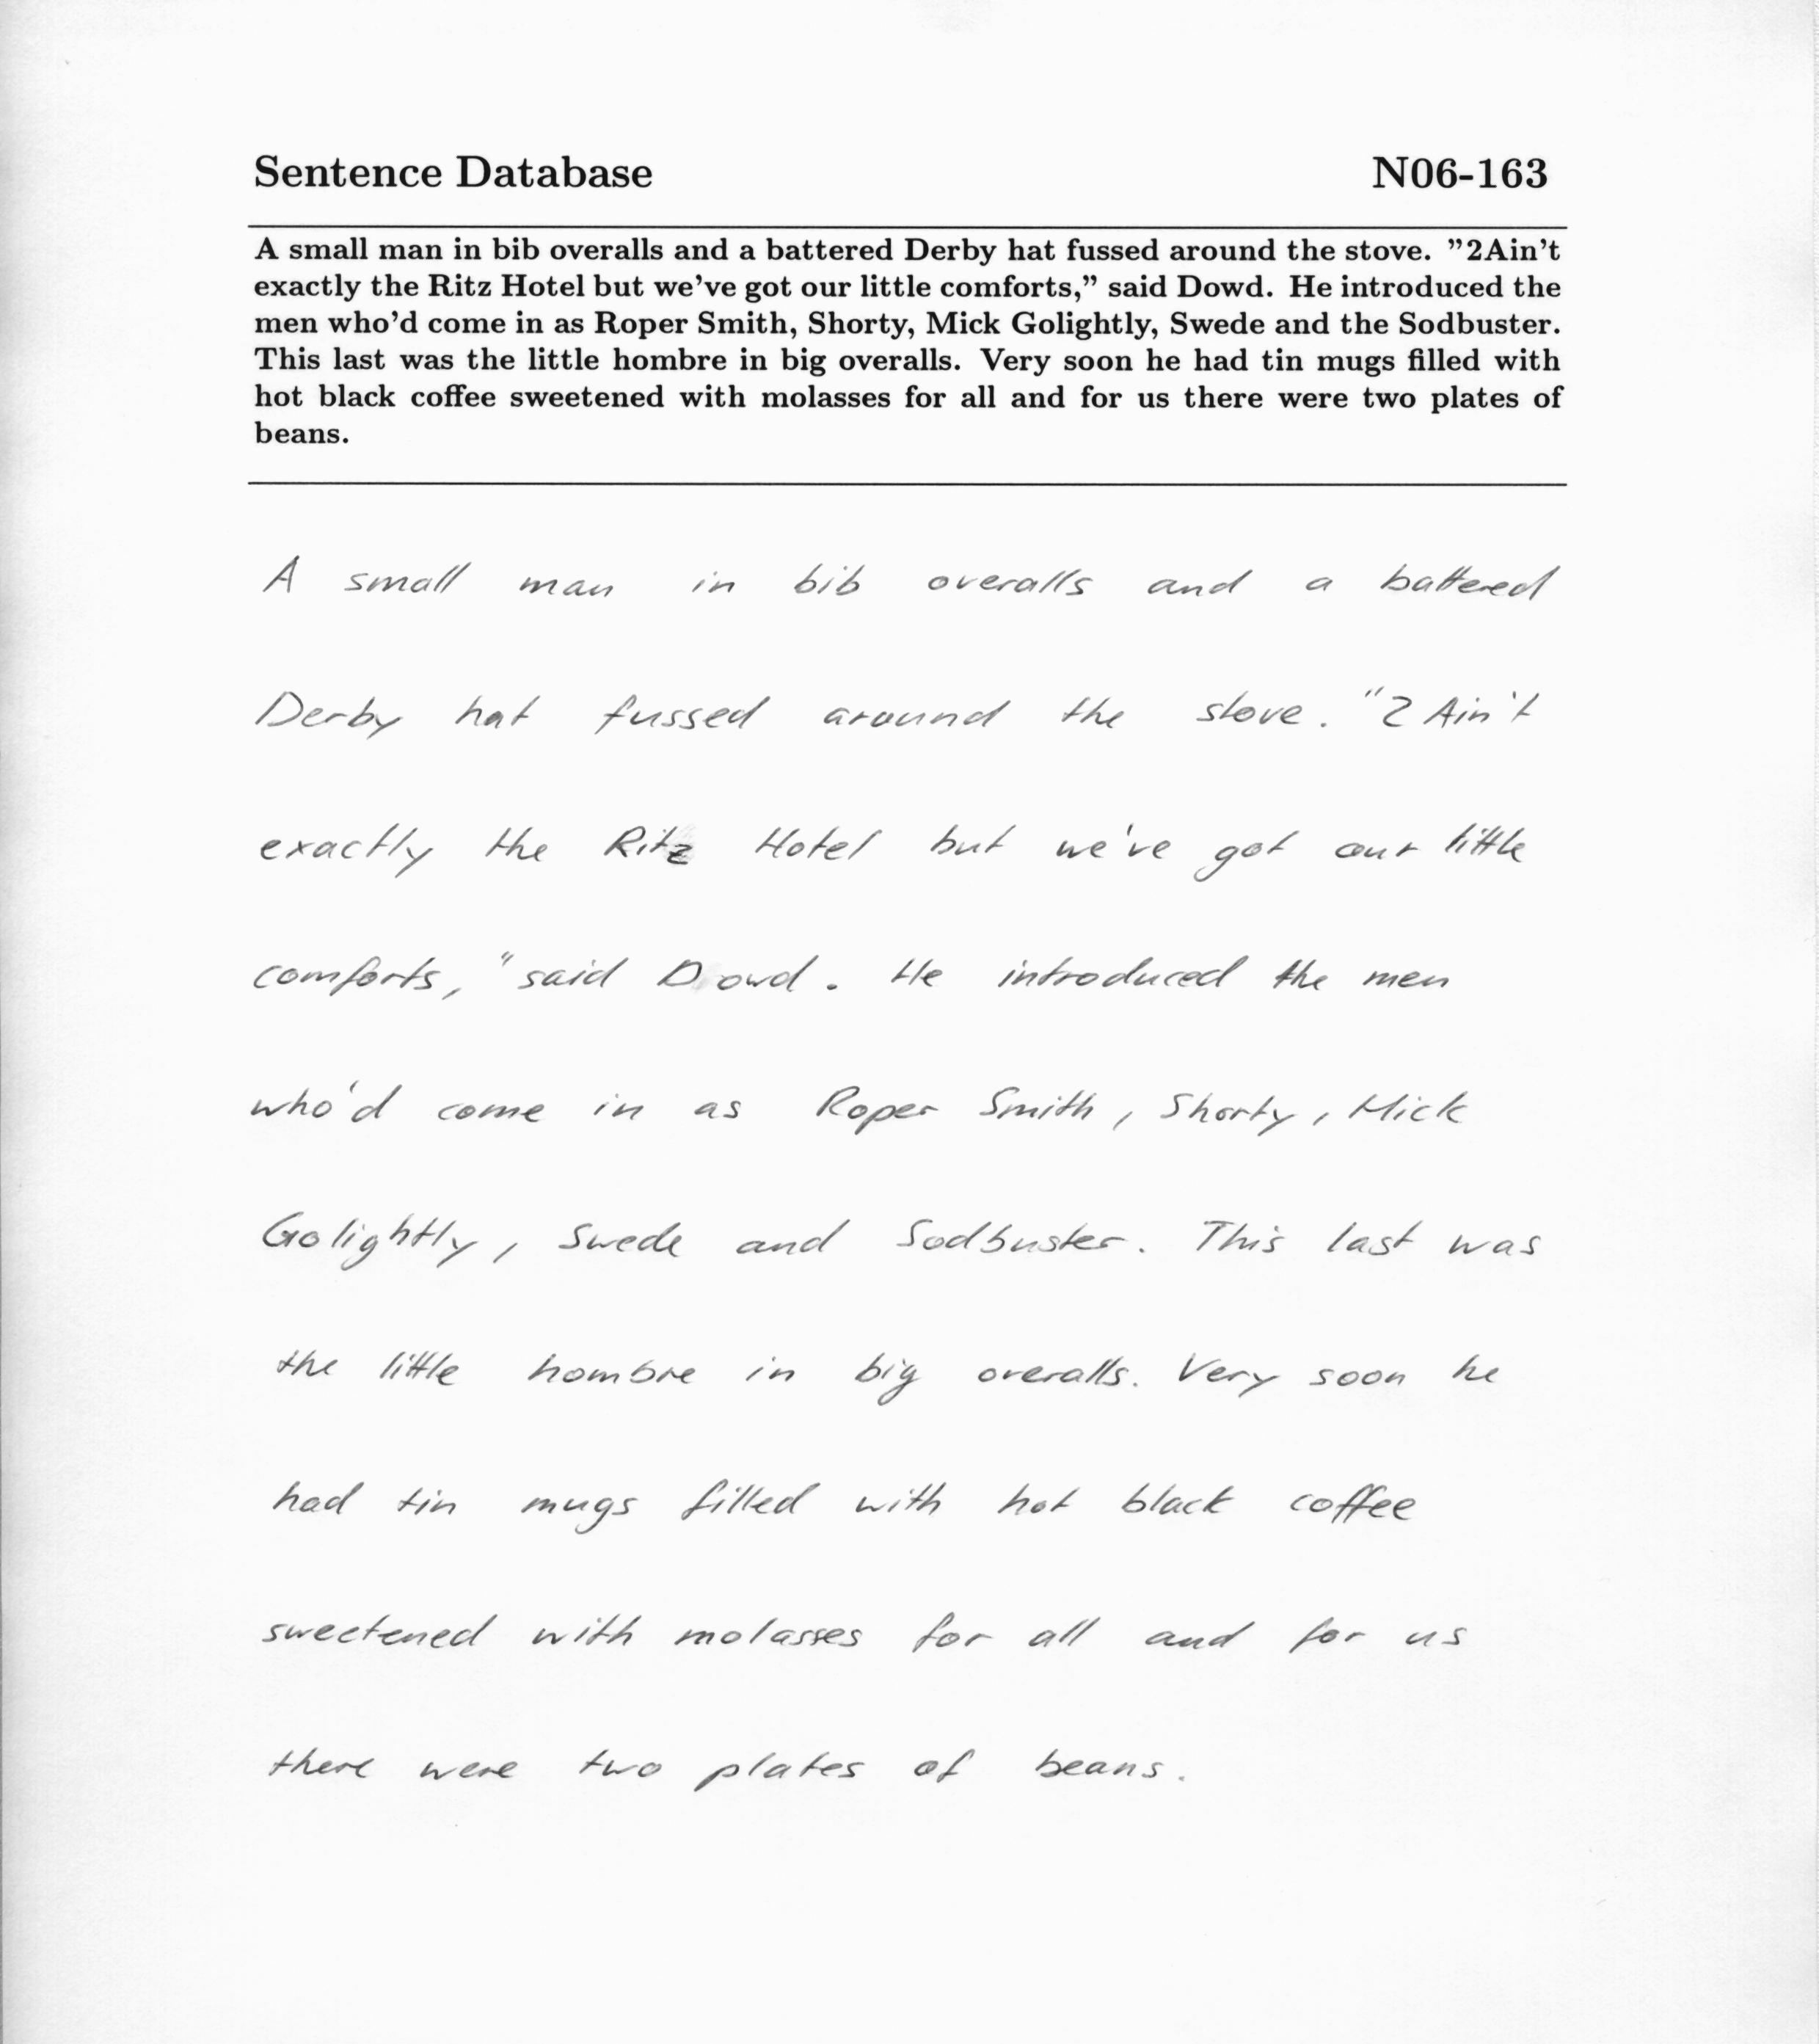 Sentence Database N06-163
A small man in bib overalls and a battered Derby hat fussed around the stove. ”2Ain’t
exactly the Ritz Hotel but we’ve got our little comforts,” said Dowd. He introduced the
men who’d come in as Roper Smith, Shorty, Mick Golightly, Swede and the Sodbuster.
This last was the little hombre in big overalls. Very soon he had tin mugs filled with
hot black coffee sweetened with molasses for all and for us there were two plates of
beans.
A small man in bib overalls and a battered
Derby hat fussed around the stove. "2 Ain't
exactly the Ritz Hotel but we've got our little
comforts," said Dowd. He introduced the men
who'd come in as Roper Smith, Shorty, Mick
Golightly, Swede and Sodbuster. This last was
the little hombre in big overalls. Very soon he
had tin mugs filled with hot black coffee
sweetened with molasses for all and for us
there were two plates of beans.